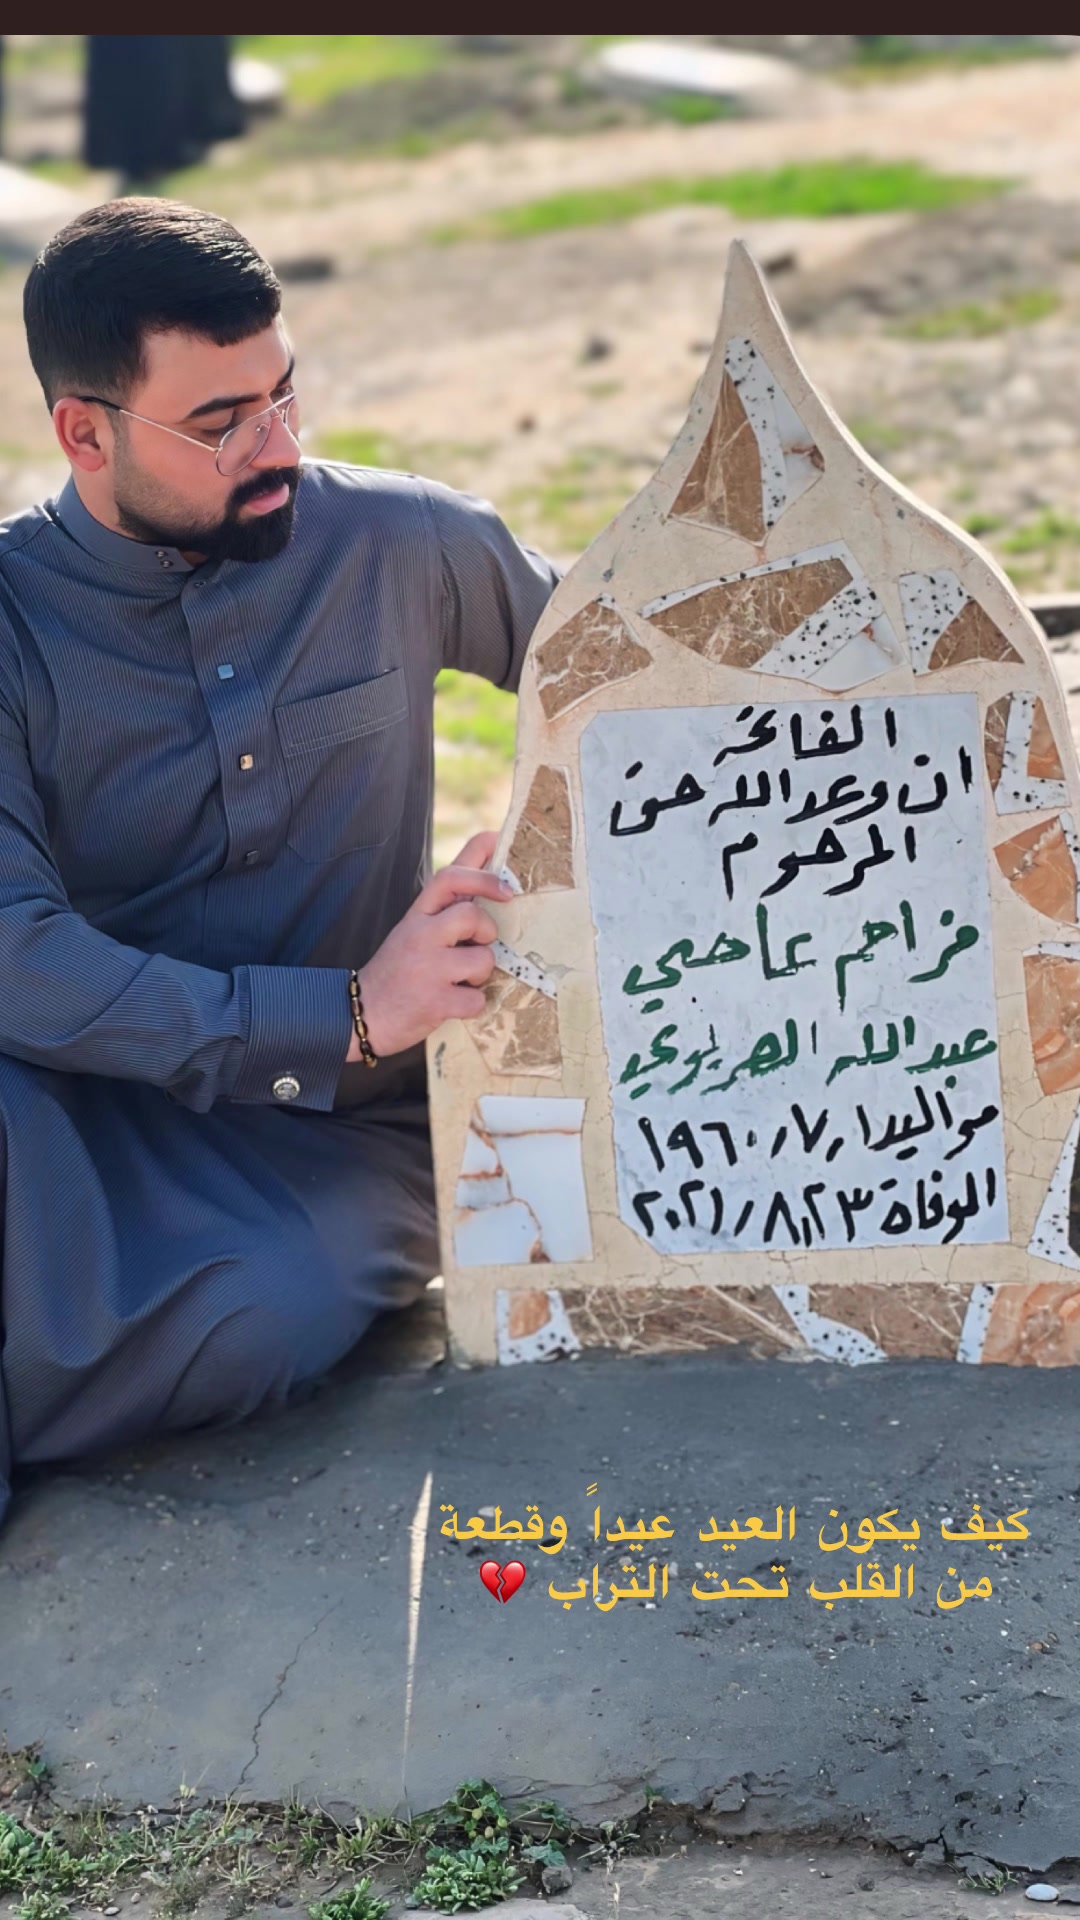 الفاتحة
ان وعد الله حق
المرحوم
مزاحم عاصي
عبدالله الهريوي
مواليد ١٩٦٠/٧/١
الوفاة ٢٠٢١/٨/٢٣
كيف يكون العيد عيداً وقطعة
من القلب تحت التراب 💔